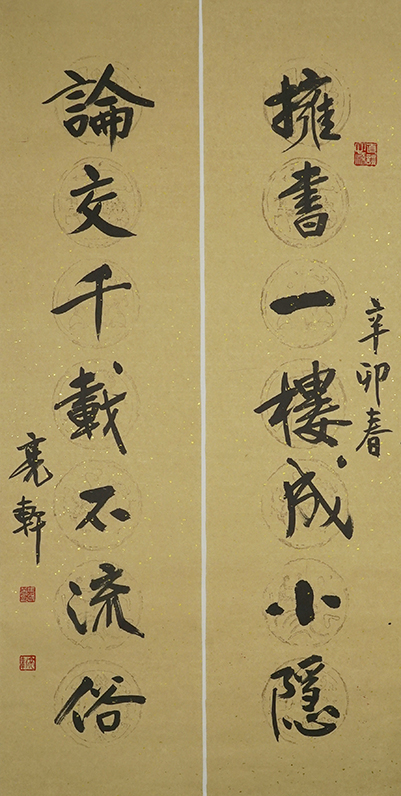 擁書一樓成小隱
辛卯春
論交千載不流俗
亮軒